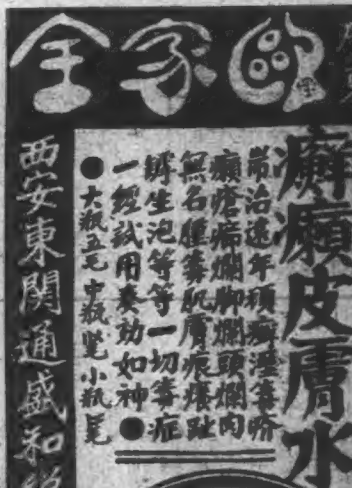 歐家全
癬癩皮膚水
耑治遠年頑癬溼毒疥
癩瘡爛脚爛頭爛肉
無名腫毒肌膚痕癢趾
罅生泡等等一切毒症
一經試用奏効如神●
●大瓶五毛中瓶小瓶
西安東關通盛和